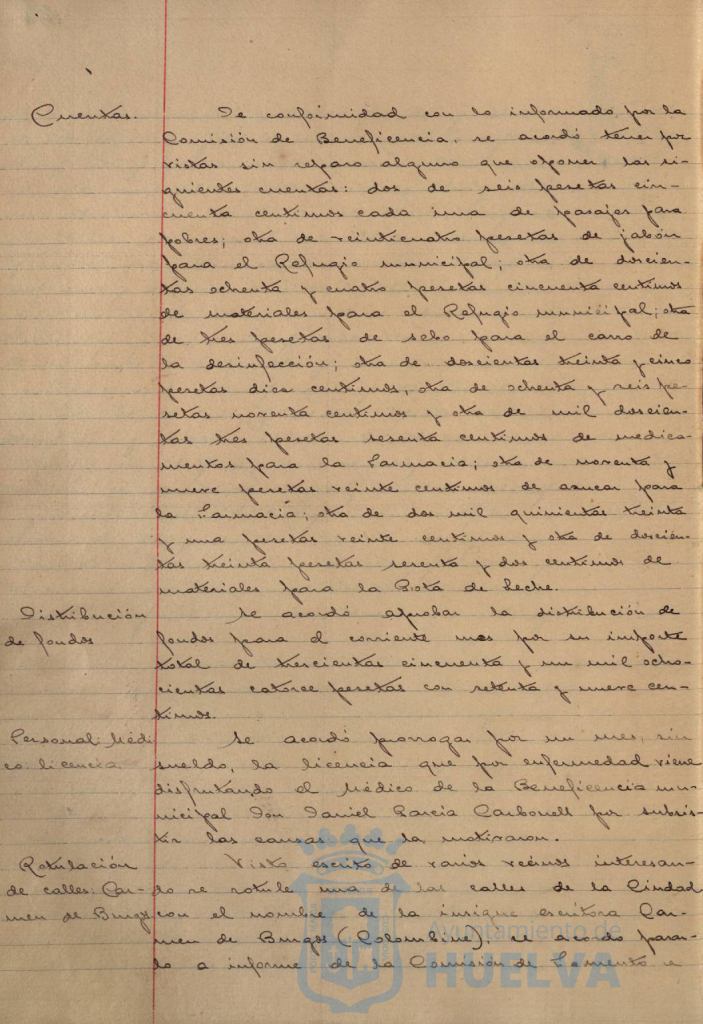 Cuentas.
De conformidad con lo informado por la
Comisión de Beneficencia, se acordó tener por
vistas sin reparo alguno que oponer las si-
guientes cuentas: dos de seis pesetas cin-
cuenta centimos cada una de pasajes para
pobres; otra de veinticuatro pesetas de jabón
para el Refugio municipal; otra de doscien-
tas ochenta y cuatro pesetas cincuenta centimos
de materiales para el Refugio municipal; otra
de tres pesetas de sebo para el carro de
la desinfección; otra de doscientas treinta y cinco
pesetas diez centimos, otra de ochenta y seis pe-
setas noventa centimos y otra de mil doscien-
tas tres pesetas sesenta centimos de medica-
mentos para la Farmacia; otra de noventa y
nueve pesetas veinte centimos de azucar para
la Farmacia; otra de dos mil quinientas treinta
y una pesetas veinte centimos y otra de doscien-
tas treinta pesetas setenta y dos centimos de
materiales para la Gota de Leche.
Distribución
de fondos
Se acordó aprobar la distribución de
fondos para el corriente mes por su importe
total de trescientas cincuenta y un mil ocho-
cientas catorce pesetas con setenta y nueve cen-
timos.
Personal: Médi
co: licencia
Se acordó prorrogar por un mes, sin
sueldo, la licencia que por enfermedad viene
disfrutando el Médico de la Beneficencia mu-
nicipal Don Daniel García Carbonell por subsis-
tir las causas que la motivaron.
Rotulación
de calles: Car-
men de Burgos
Visto escrito de varios vecinos interesan-
do se rotule una de las calles de la Ciudad
con el nombre de la insigne escritora Car-
men de Burgos (Colombine), se acordo pasar-
lo a informe de la Comisión de Fomento e
Ayuntamiento de
HUELVA